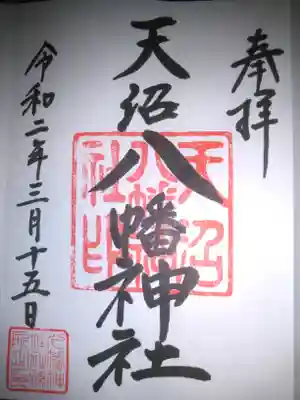 奉拝
天沼八幡神社
天沼
八幡神
社印
令和二年三月十五日